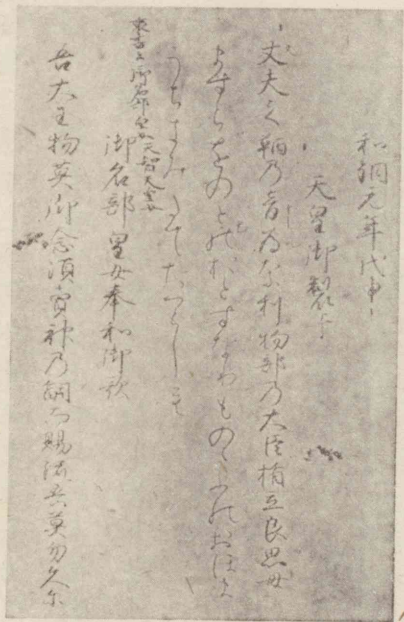 和銅元年戊申
天皇御製
丈夫之鞆乃音為奈利物部乃大臣楯立良思母
ますらをのとものおとすなりものゝふのおほま
うちきみたてたつらしも
御名部皇女天智天皇
御名部皇女奉和御歌
吾大王物莫御念須賣神乃嗣而賜流吾莫勿久尓